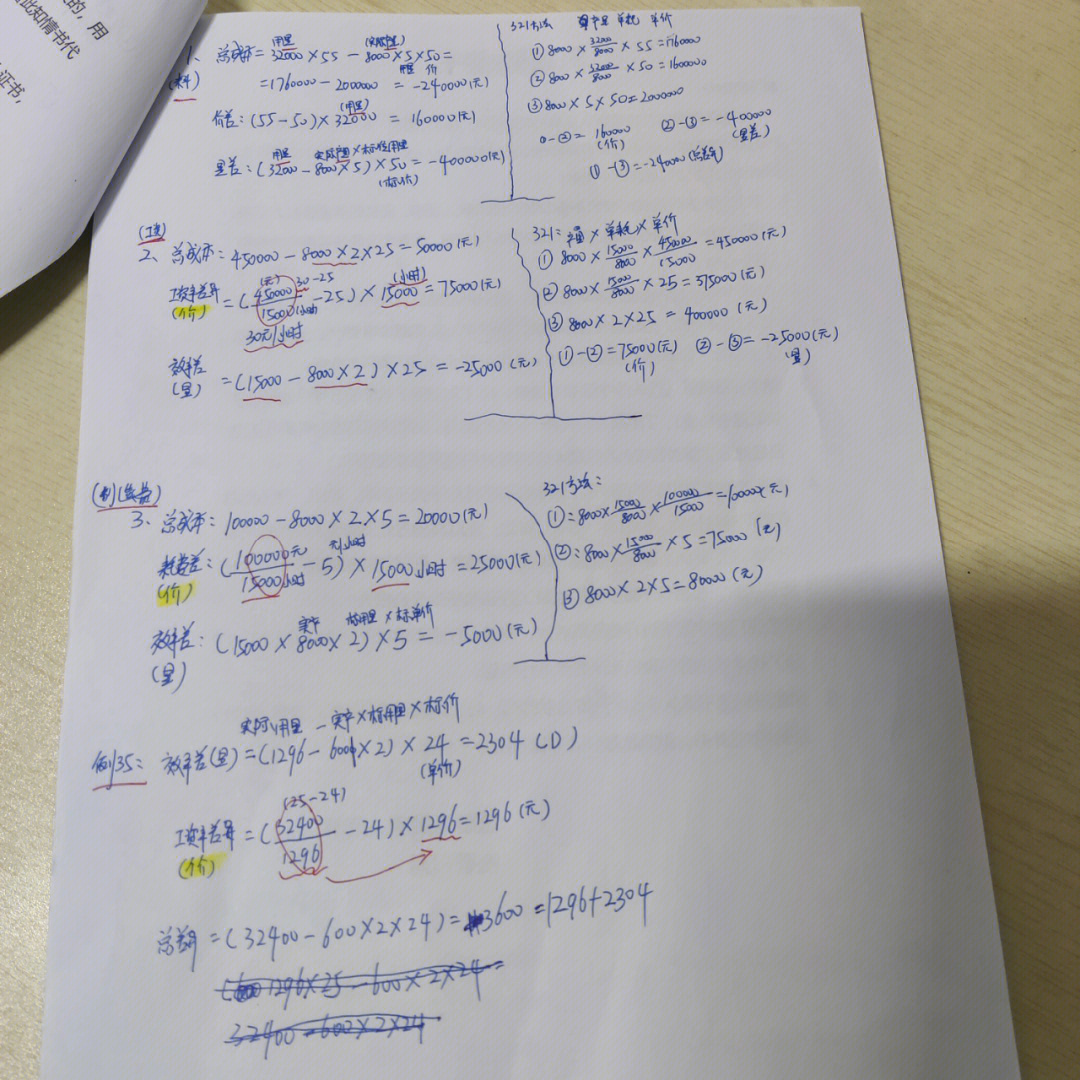 的，用
此知情书代
证书，
用量 (实际产量)
1、总成本=32000×55-8000×5×50=
(料) 用量 价
=1760000-2000000=-240000(元)
(用量)
价差:(55-50)×32000=160000(元)
用量 实际产量×标准用量
量差:(32000-8000×5)×50=-400000(元)
(标价)
321方法 实产量 单耗 单价
①8000×32000/8000×55=1760000
②8000×32000/8000×50=1600000
③8000×5×50=2000000
①-②=160000 ②-③=-400000
(价) (量差)
①-③=-240000(总差异)
(工资)
2、总成本:450000-8000×2×25=50000(元)
(元) 30-25 (小时)
工资率差异=(450000/15000小时-25)×15000=75000(元)
(价)
30元/小时
效率差=(15000-8000×2)×25=-25000(元)
(量)
321:产量×单耗×单价
①8000×15000/8000×450000/15000=450000(元)
②8000×15000/8000×25=375000(元)
③8000×2×25=400000(元)
①-②=75000(元) ②-③=-25000(元)
(价) (量)
(制造费)
3、总成本:100000-8000×2×5=20000(元)
元/小时
耗费差:(100000元/15000小时-5)×15000小时=25000(元)
(价)
实产 标用量×标单价
效率差:(15000×8000×2)×5=-5000(元)
(量)
321方法:
①:8000×15000/8000×100000/15000=100000(元)
②:8000×15000/8000×5=75000(元)
③8000×2×5=80000(元)
实际用量-实产×标用量×标价
例35:效率差(量)=(1296-600×2)×24=2304(D)
(单价)
(25-24)
工资率差异=(32400/1296-24)×1296=1296(元)
(价)
总差异=(32400-600×2×24)=3600=1296+2304
1296×25-600×2×24=
32400-600×2×24